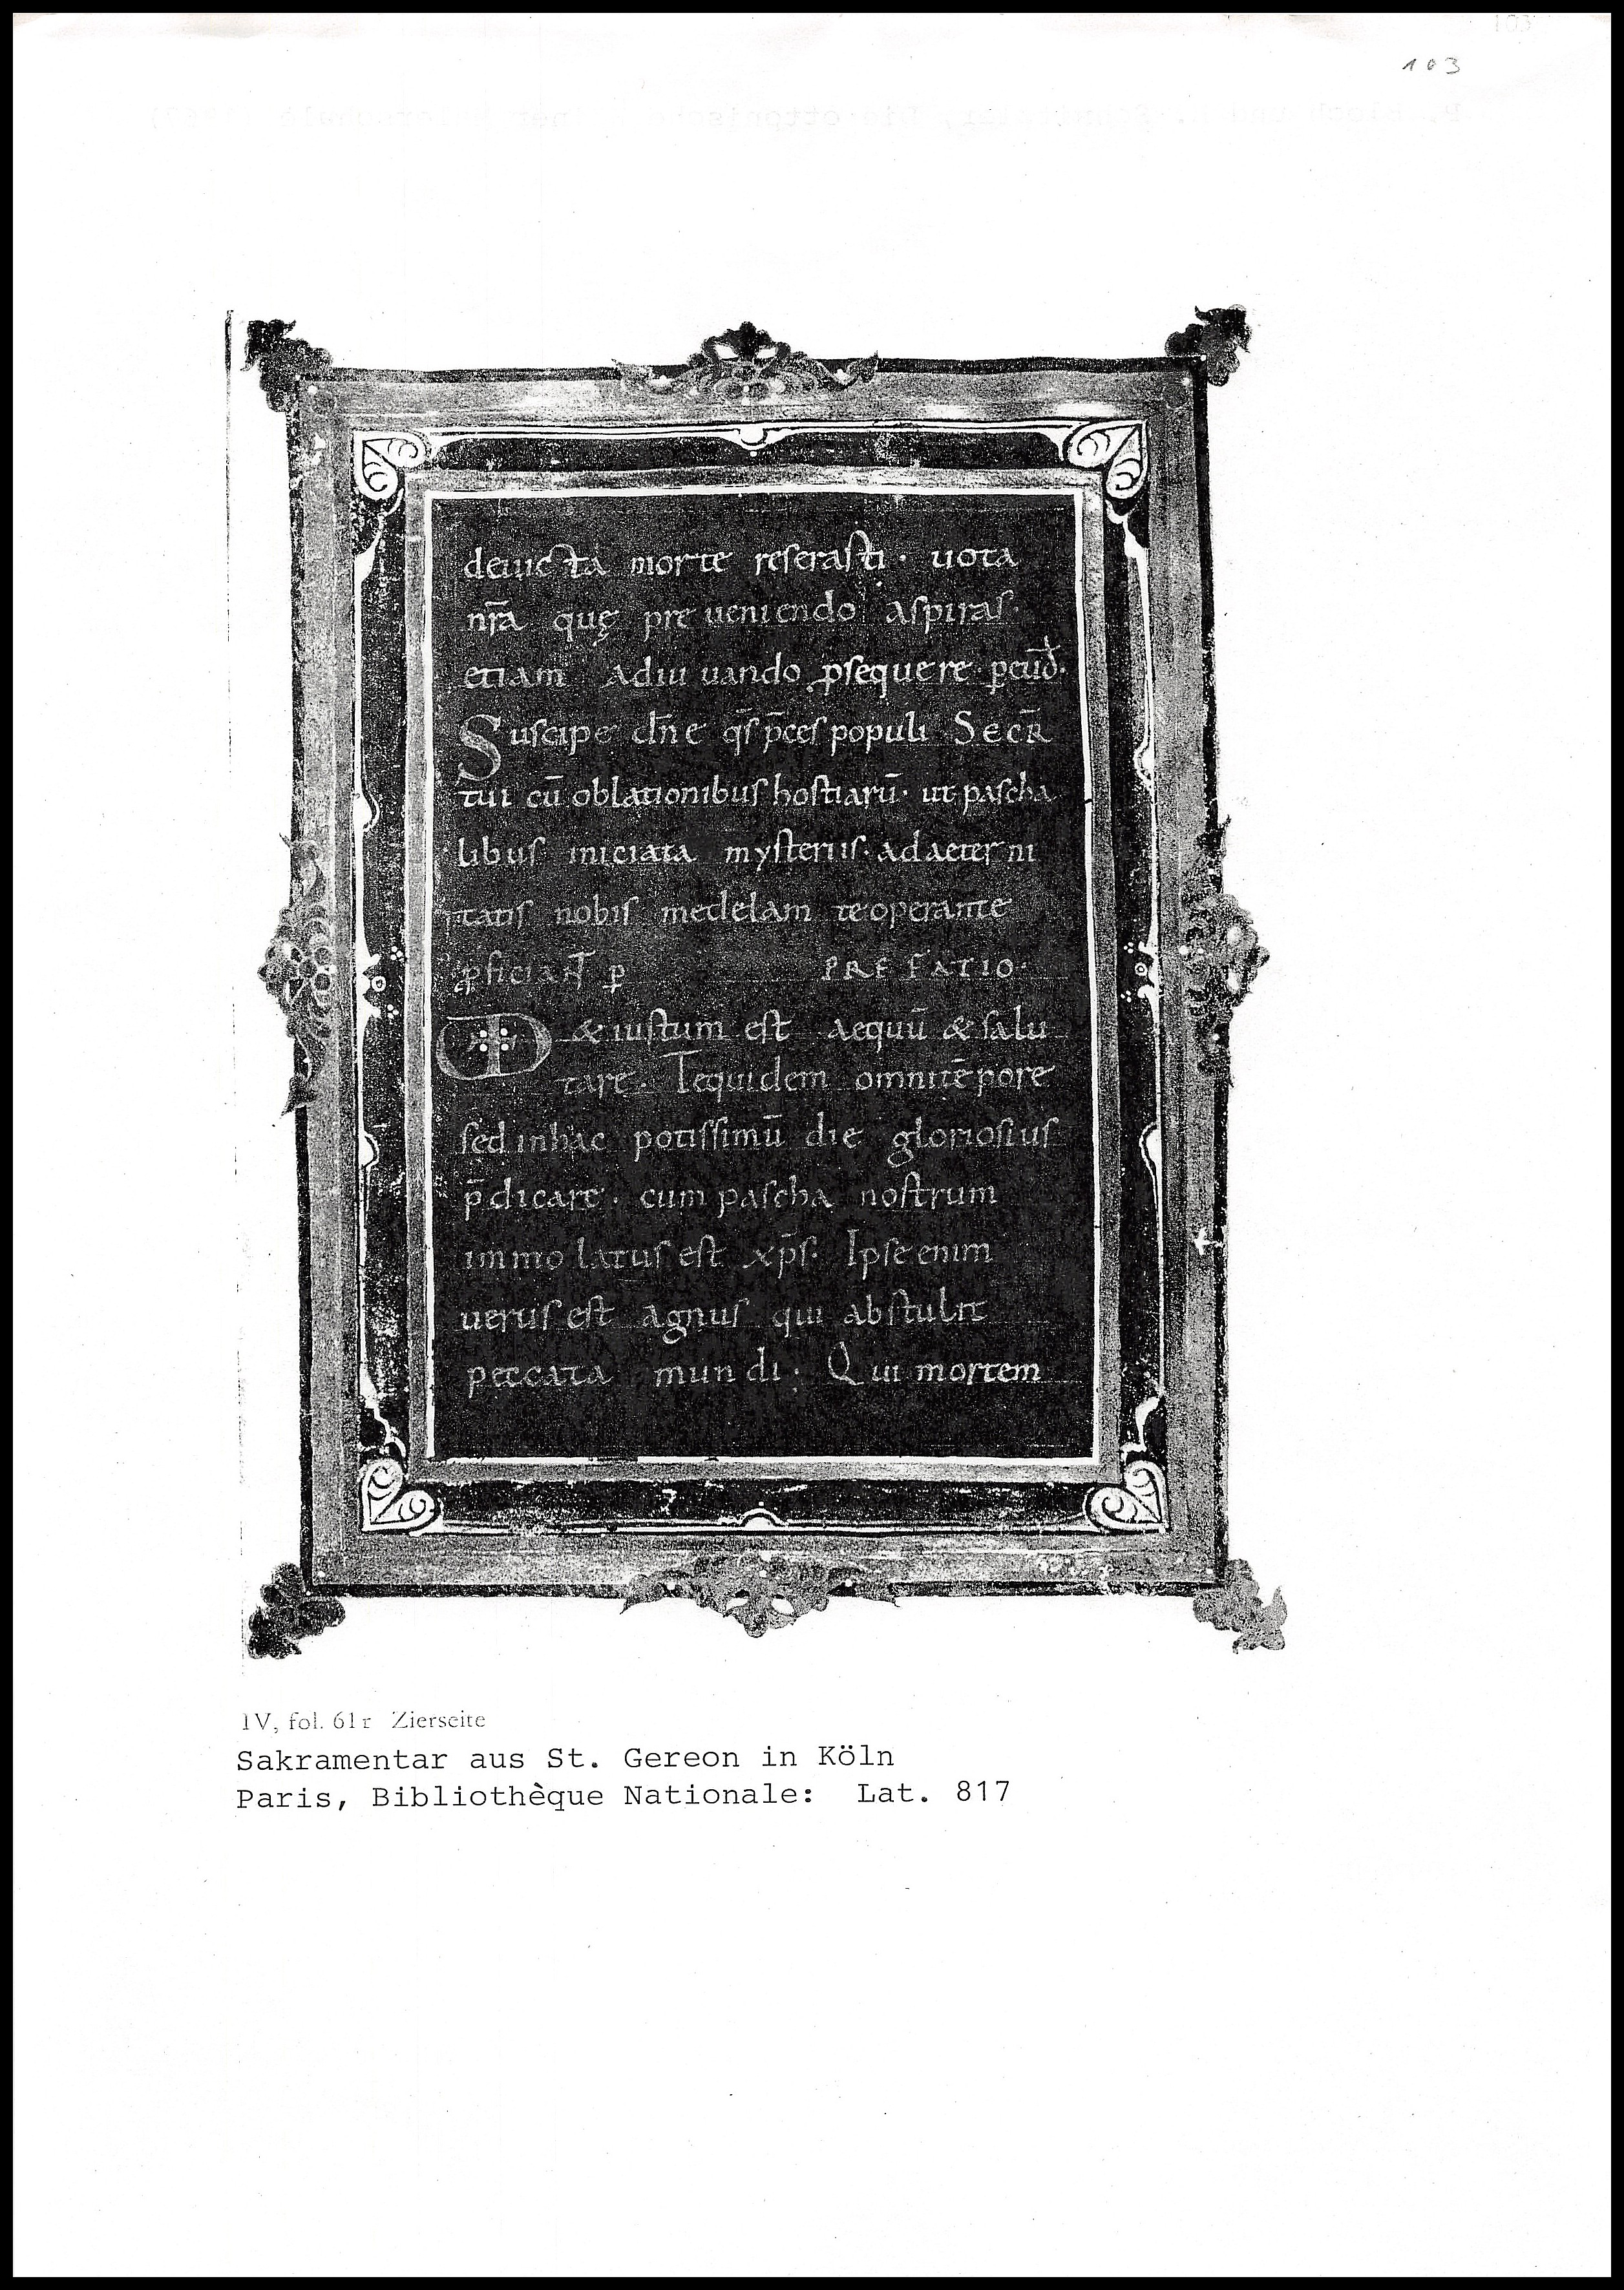 103
deuicta morte reserasti · uota
nr̄a quę preueniendo aspiras·
etiam adiuuando ꝓsequere · ꝑeund̄·
Suscipe dn̄e qs̄ p̄ces populi SECR̄
tui cū oblationibus hostiarū· ut pascha
libus iniciata mysteriis· ad aeterni
tatis nobis medelam te operante
ꝓficiant̄ ꝑ PREFATIO·
& iustum est aequū & salu
tare. Te quidem omni tēpore
sed in hac potissimū die gloriosius
p̄dicare · cum pascha nostrum
immolatus est xp̄s· Ipse enim
uerus est agnus qui abstulit
peccata mundi · Qui mortem
IV, fol. 61r Zierseite
Sakramentar aus St. Gereon in Köln
Paris, Bibliothèque Nationale: Lat. 817